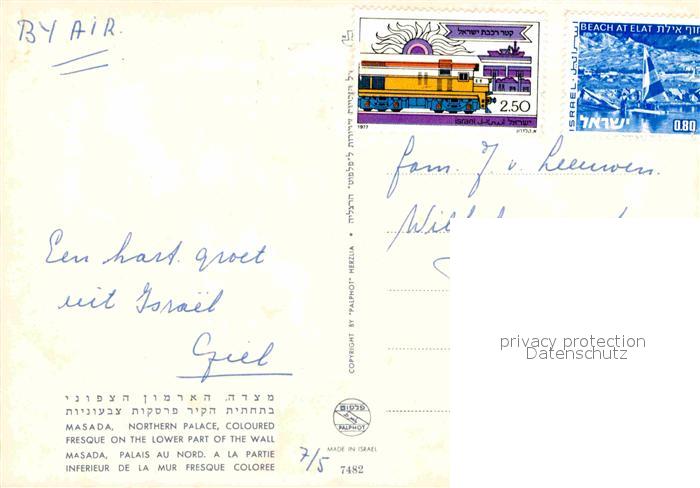 BY AIR.
קטר רכבת ישראל
2.50
Israel ישראל
1977
BEACH AT ELAT חוף אילת
ISRAEL
ישראל 0.80
fam. J. v. Leeuwen.
Een hart. groet
uit Israël
Giel
COPYRIGHT BY "PALPHOT" HERZLIA *
מצדה, הארמון הצפוני
בתחתית הקיר פרסקות צבעוניות
MASADA, NORTHERN PALACE, COLOURED
FRESQUE ON THE LOWER PART OF THE WALL
MASADA, PALAIS AU NORD. A LA PARTIE
INFERIEUR DE LA MUR FRESQUE COLOREE
פלפוט
PALPHOT
MADE IN ISRAEL
7/5 7482
privacy protection
Datenschutz